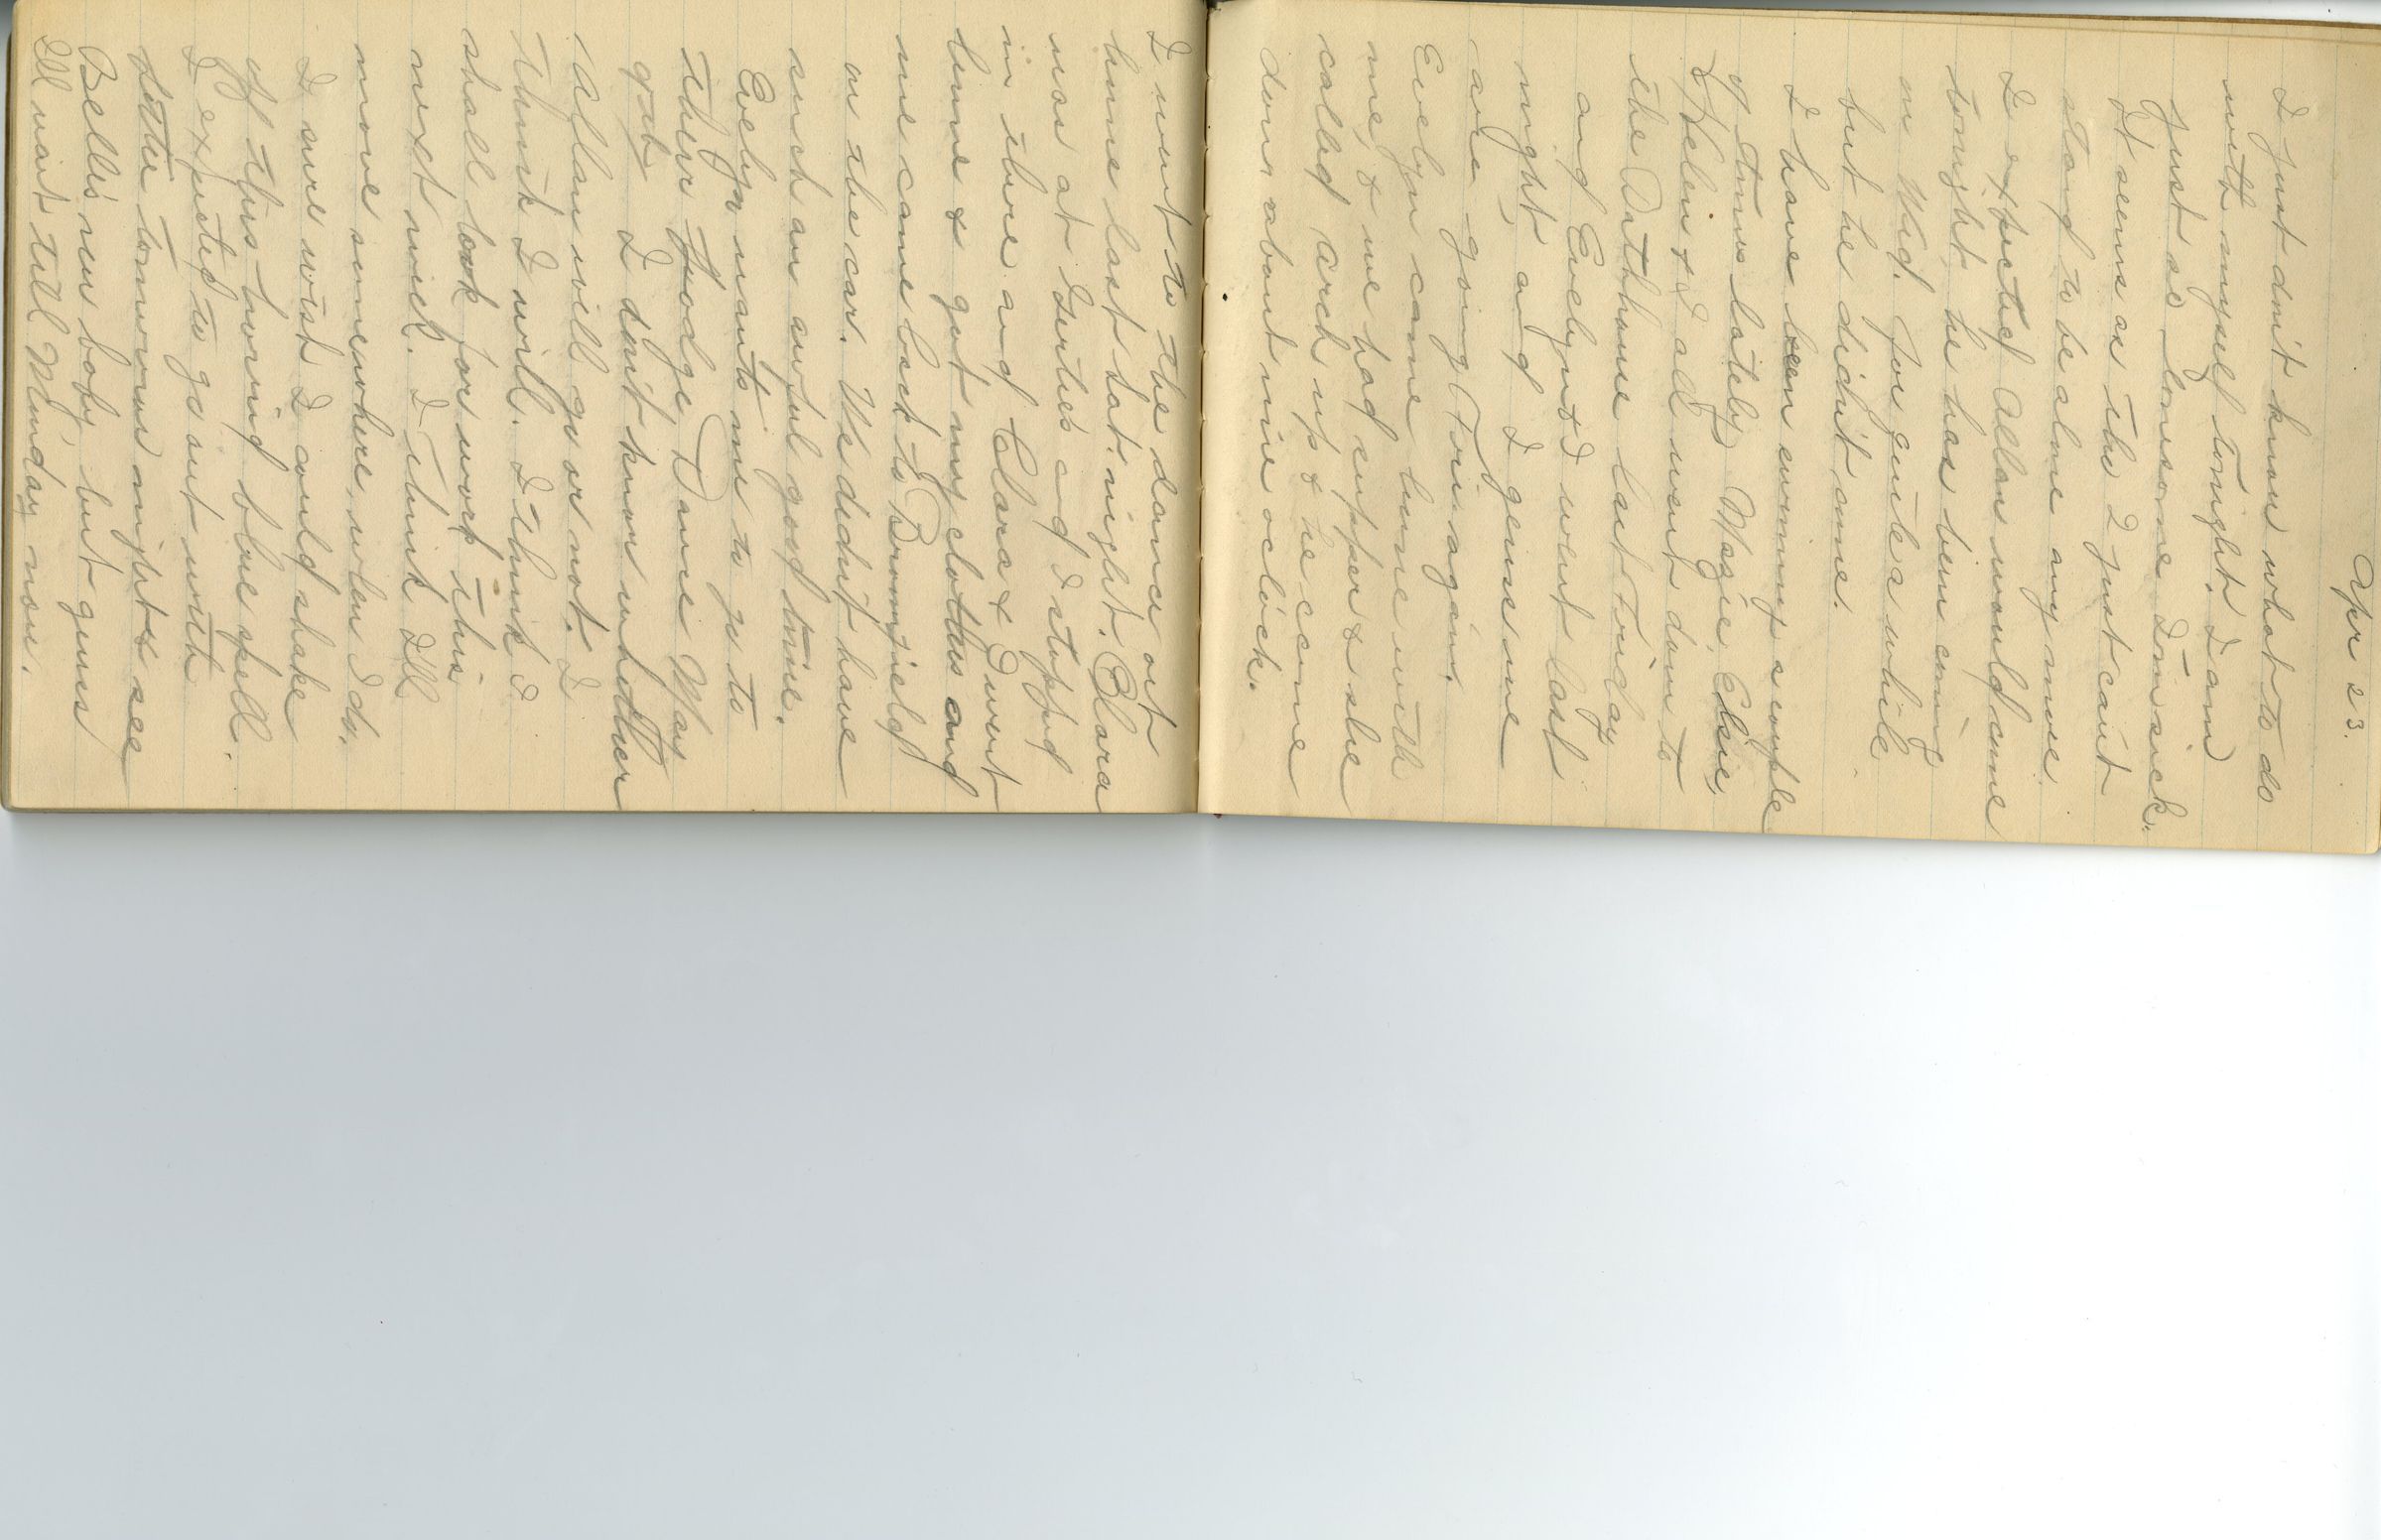 Apr 23.
I just don't know what to do
with myself tonight. I am
just so lonesome I'm sick.
It seems as tho I just can't
stand to be alone any more
I expected Allan would come
tonight, he has been coming
on Wed. for quite a while
but he didn't come.
I have been swimming a couple
of times lately. Mazie, Elsie,
Helen & I all went down to
the Bathhouse last Friday
and Evelyn & I went last
night, and I guess we
are going Fri. again.
Evelyn came home with
me, & we had supper & she
called Arch up & he came
down about nine oclock.
I went to the dance out
home last Sat. night. Clara
was at Gertie's and I stopped
in there and Clara & I went
home & got my clothes and
we came back to Bromfield
on the car. We didn't have
such an awful good time.
Evelyn wants me to go to
there Lodge Dance May
9th I don't know whether
Allan will go or not. I
think I will. I think I
shall look for work this
next week. I think I'll
move somewhere, when I do.
I sure wish I could shake
off this horrid blue spell.
I expected to go out with
Lottie tomorrow night & see
Belle's new baby but guess
I'll wait till Monday now.